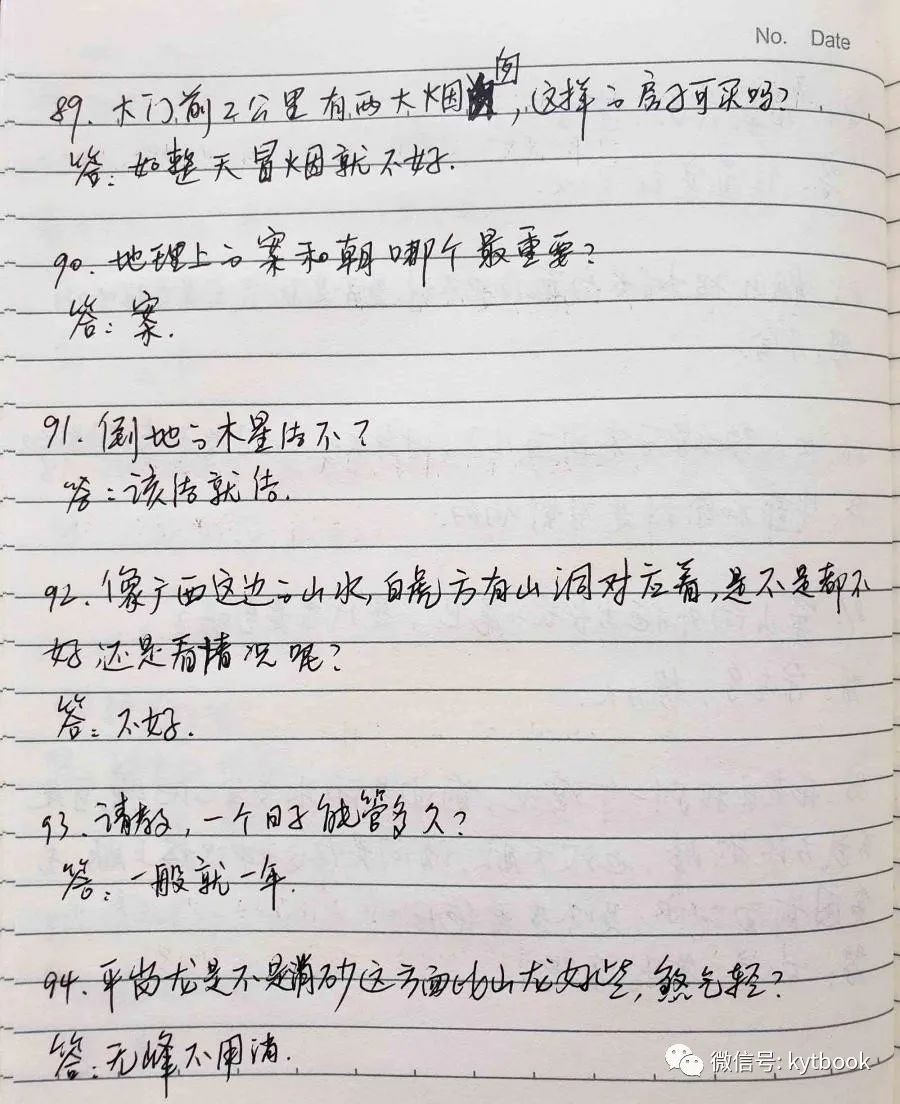 No. Date
89. 大门前2公里有两大烟囱,这样的房子可买吗?
答:如整天冒烟就不好.
90. 地理上的案和朝哪个最重要?
答:案.
91. 倒地的木星估不?
答:该估就估.
92. 像广西这边的山水,白虎方有山洞对应着,是不是都不
好还是看情况呢?
答:不好.
93. 请教,一个日子能管多久?
答:一般就一年.
94. 平冈龙是不是消砂这方面比山龙好些,煞气轻?
答:无峰不用消.
微信号: kytbook